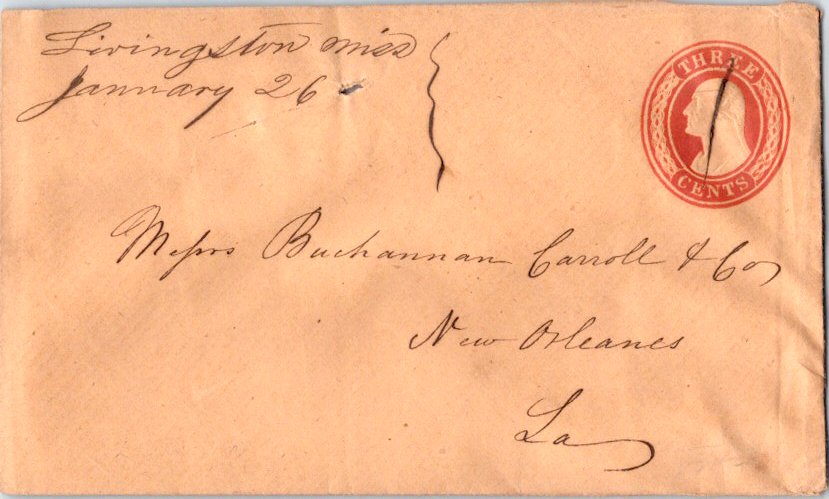 Livingston Miss
January 26
THREE
CENTS
Messrs Buchannan Carroll & Co
New Orleanes
La